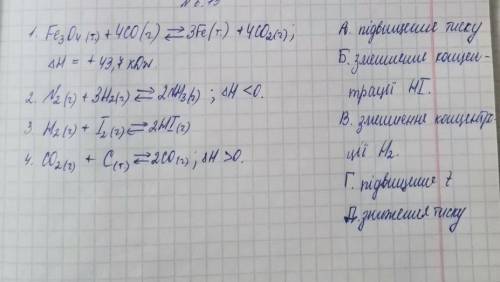 1. Fe3O4(т) + 4CO(г) ⇄ 3Fe(т) + 4CO2(г);
ΔH = + 43,7 кДж
2. N2(г) + 3H2(г) ⇄ 2NH3(г) ; ΔH < 0.
3. H2(г) + I2(г) ⇄ 2HI(г)
4. CO2(г) + C(т) ⇄ 2CO(г); ΔH > 0.
А. підвищення тиску
Б. зменшення концен-
трації HI.
В. зменшення концентра-
ції H2.
Г. підвищення t
Д. зниження тиску